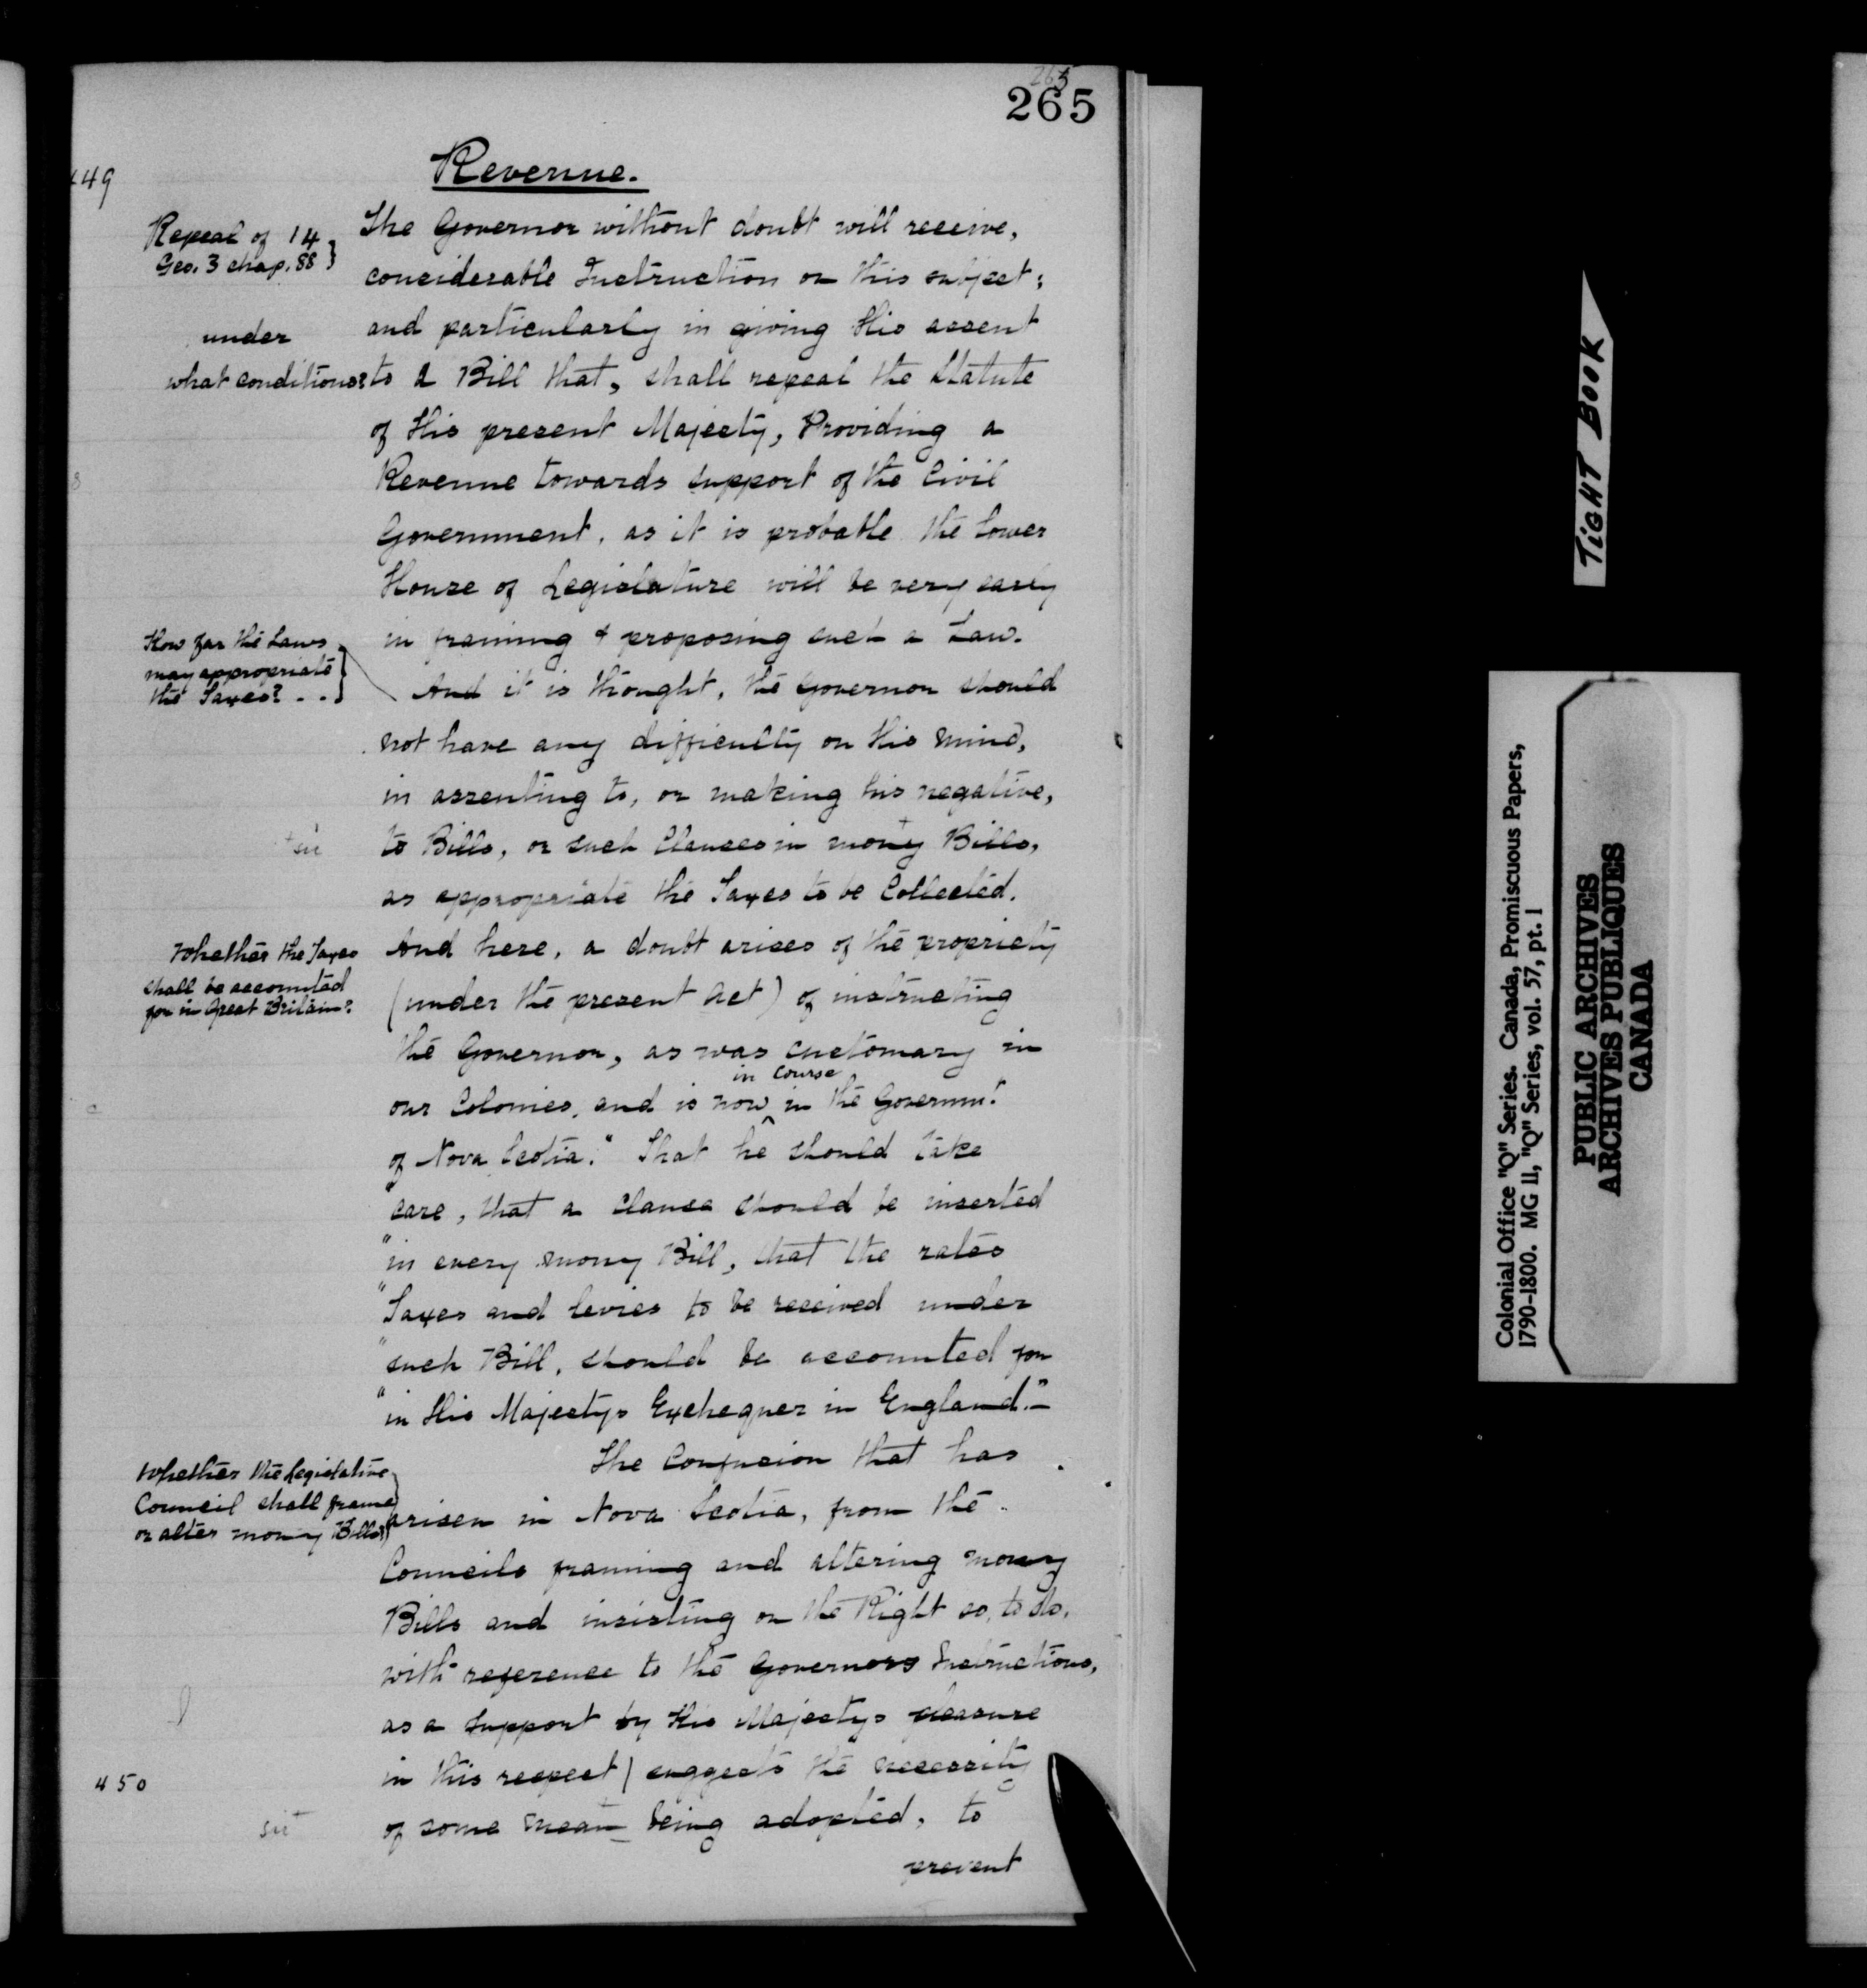 265
265
449
Revenue.
Repeal of 14
Geo. 3 chap. 88
under
what conditions?
The Governor without doubt will receive,
considerable Instruction on this subject;
and particularly in giving His assent
to a Bill that, shall repeal the Statute
of His present Majesty, Providing a
Revenue towards support of the Civil
Government, as it is probable the Lower
House of Legislature will be very early
in framing & proposing such a Law.
How far the Laws
may appropriate
the Taxes? - -
And it is thought, the Governor should
not have any difficulty on His mind,
in assenting to, or making his negative,
to Bills, or such Clauses in mony Bills,
+sic
as appropriate the Taxes to be Collected.
Whether the Taxes
shall be accounted
for in Great Britain?
And here, a doubt arises of the propriety
(under the present Act) of instructing
the Governor, as was customary in
in Course
our Colonies, and is now ^ in the Governmt
of Nova Scotia. "That he should take
"care, that a clause should be inserted
"in every mony Bill, that the rates
"Taxes and levies to be received under
"such Bill, should be accounted for
"in His Majestys Exchequer in England."-
Whether the Legislative
Council shall frame
or alter mony Bills?
The Confusion that has
arisen in Nova Scotia, from the
Councils framing and altering mony
Bills and insisting on the Right so, to do,
with reference to the Governors Instructions,
as a support by His Majestys pleasure
450
in this respect / suggests the necessity
sic
of some mean being adopted, to
prevent
TIGHT BOOK
Colonial Office "Q" Series. Canada, Promiscuous Papers,
1790-1800. MG 11, "Q" Series, vol. 57, pt. 1
PUBLIC ARCHIVES
ARCHIVES PUBLIQUES
CANADA